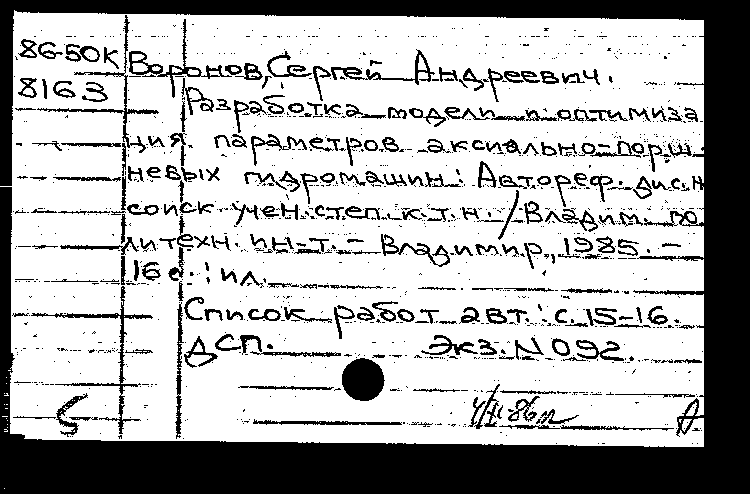 86-50К Воронов, Сергей Андреевич.
8163 Разработка модели и оптимиза
ция параметров аксиально-порш
невых гидромашин: Автореф. дис. н
соиск учен. степ. к.т.н. / Владим. по
литехн. ин-т. - Владимир, 1985. -
16 с.: ил.
Список работ авт.: с. 15-16.
ДСП. Экз. N 092.